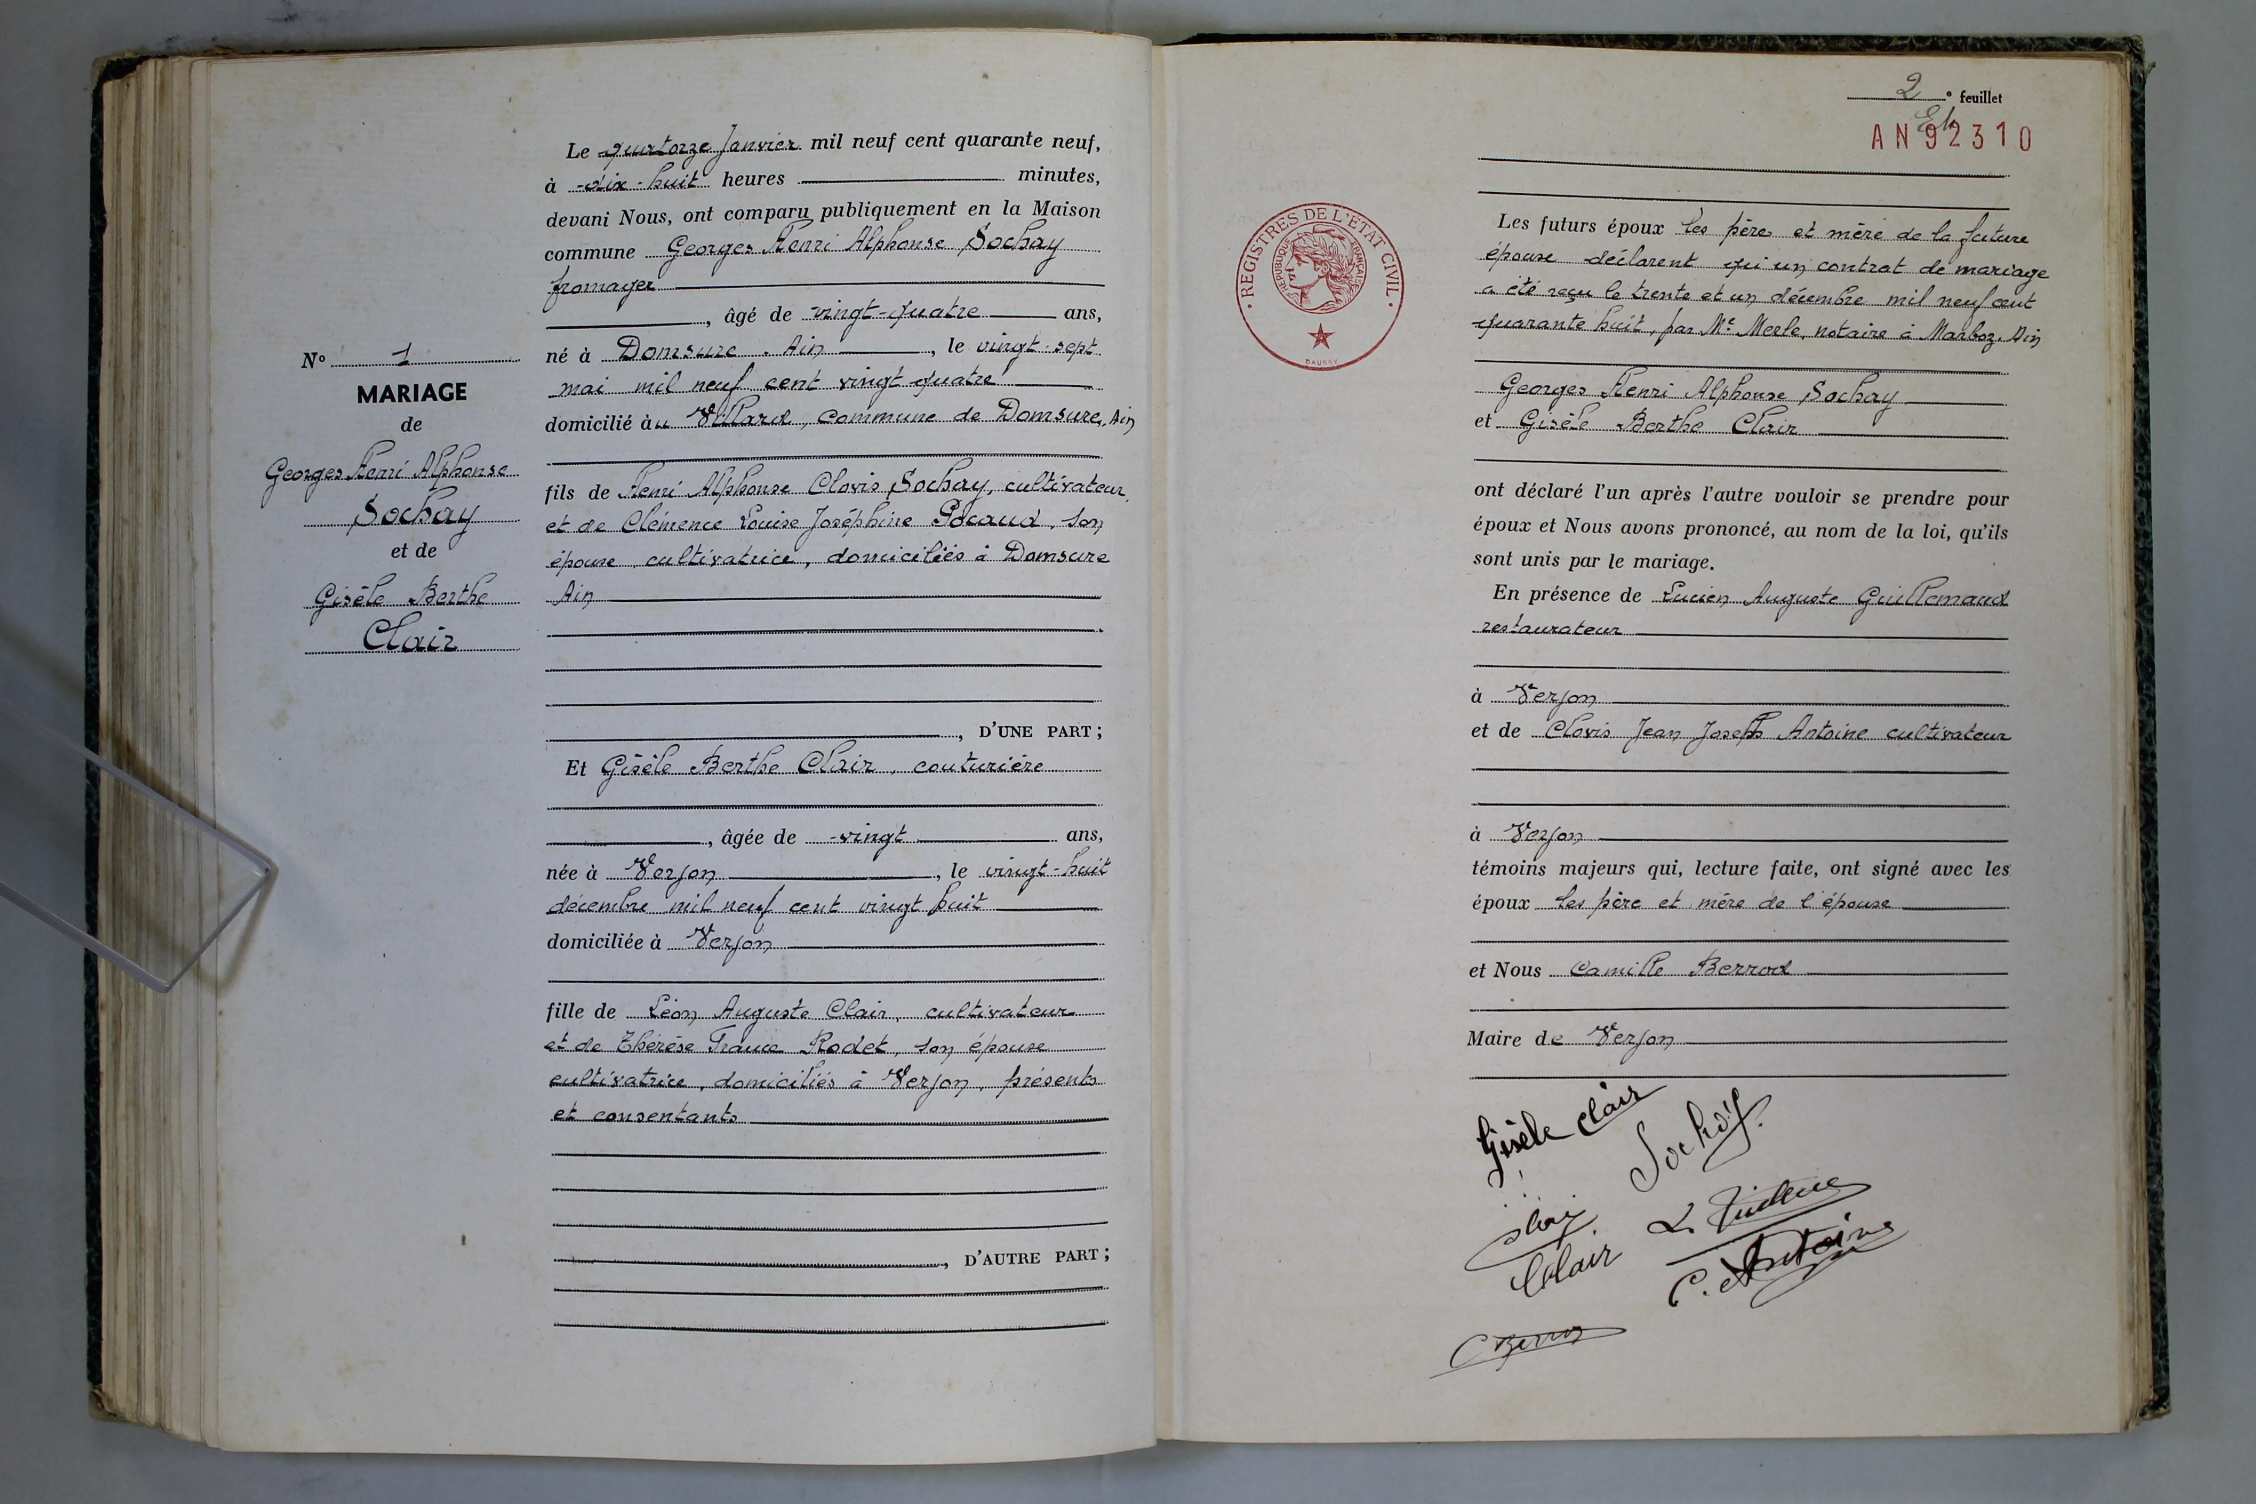 Le quatorze Janvier mil neuf cent quarante neuf,
à dix-huit heures minutes,
devani Nous, ont comparu publiquement en la Maison
commune Georges Henri Alphonse Sochay
fromager
, âgé de vingt-quatre ans,
né à Domsure. Ain, le vingt-sept
mai mil neuf cent vingt quatre
domicilié àu Villard, commune de Domsure, Ain
fils de Henri Alphonse Clovis Sochay, cultivateur,
et de Clémence Louise Joséphine Pocaud, son
épouse cultivatrice, domiciliés à Domsure
Ain
, D'UNE PART;
Et Gisèle Berthe Clair, couturière
, âgée de vingt ans,
née à Verjon, le vingt-huit
décembre mil neuf cent vingt huit
domiciliée à Verjon
fille de Léon Auguste Clair, cultivateur
et de Thérèse Rodet, son épouse
cultivatrice, domiciliés à Verjon, présents
et consentants
, D'AUTRE PART;
Nº 1
MARIAGE
de
Georges Henri Alphonse
Sochay
et de
Gisèle Berthe
Clair
2e feuillet
AN92310
REGISTRES DE L'ÉTAT CIVIL
REPUBLIQUE FRANÇAISE
DAUSSY
Les futurs époux les père et mère de la future
épouse déclarent qu'un contrat de mariage
a été reçu le trente et un décembre mil neuf cent
quarante huit, par Me Merle, notaire à Marboz, Ain
Georges Henri Alphonse Sochay
et Gisèle Berthe Clair
ont déclaré l'un après l'autre vouloir se prendre pour
époux et Nous avons prononcé, au nom de la loi, qu'ils
sont unis par le mariage.
En présence de Lucien Auguste Guillemaud
restaurateur
à Verjon
et de Clovis Jean Joseph Antoine cultivateur
à Verjon
témoins majeurs qui, lecture faite, ont signé avec les
époux les père et mère de l'épouse
et Nous Camille Berrod
Maire de Verjon
Gisèle Clair
Sochay.
Clair
C. Antoine